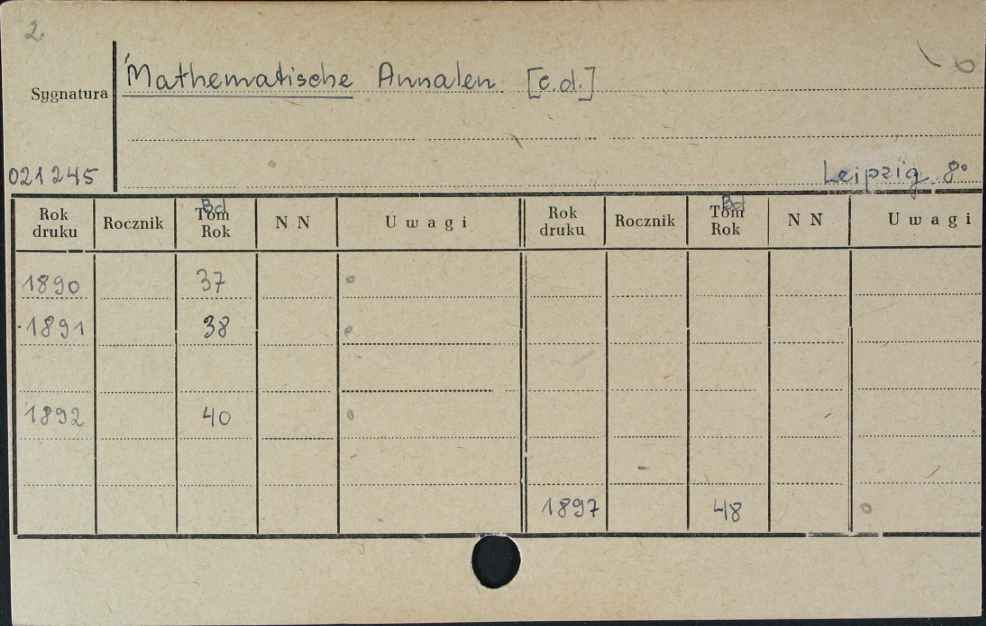 2.
Sygnatura
Mathematische Annalen [c.d.]
021245
Leipzig 8°
Rok druku Rocznik Bd Tom Rok N N Uwagi Rok druku Rocznik Bd Tom Rok N N Uwagi
1890 37
1891 38
1892 40
1897 48